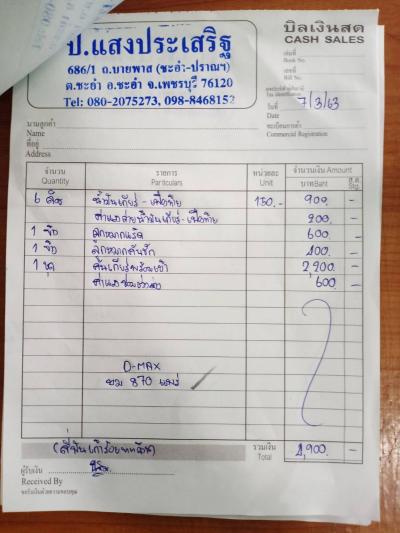 ป.แสงประเสริฐ
686/1 ถ.บายพาส (ชะอำ-ปราณฯ)
ต.ชะอำ อ.ชะอำ จ.เพชรบุรี 76120
Tel: 080-2075273, 098-8468152
บิลเงินสด
CASH SALES
เล่มที่
Book No.
เลขที่
Bill No.
วันที่ 7/3/63
Date
ทะเบียนการค้า
Commercial Registration
นามลูกค้า
Name
ที่อยู่
Address
จำนวน รายการ หน่วยละ จำนวนเงิน Amount
Quantity Particulars Unit บาทBaht ส.ต. Stg.
6 ลิตร น้ำมันเกียร์ - เฟืองท้าย 150.- 900. -
ค่าแรงถ่ายน้ำมันเกียร์ - เฟืองท้าย 200. -
1 ลูกหมาก 600 -
1 ลูกหมากคันชัก 400. -
1 ชุด คันเกียร์พร้อม 2,200. -
ค่าแรงซ่อมช่วงล่าง 600. -
D-MAX
870 เพชรบุรี
(สี่พันเก้าร้อยบาทถ้วน) รวมเงิน 4,900. -
Total
ผู้รับเงิน
Received By
ขอรับเงินด้วยความขอบคุณ